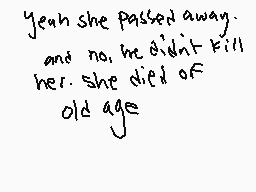 Yeah she passed away.
and no, he didn't kill
her. she died of
old age